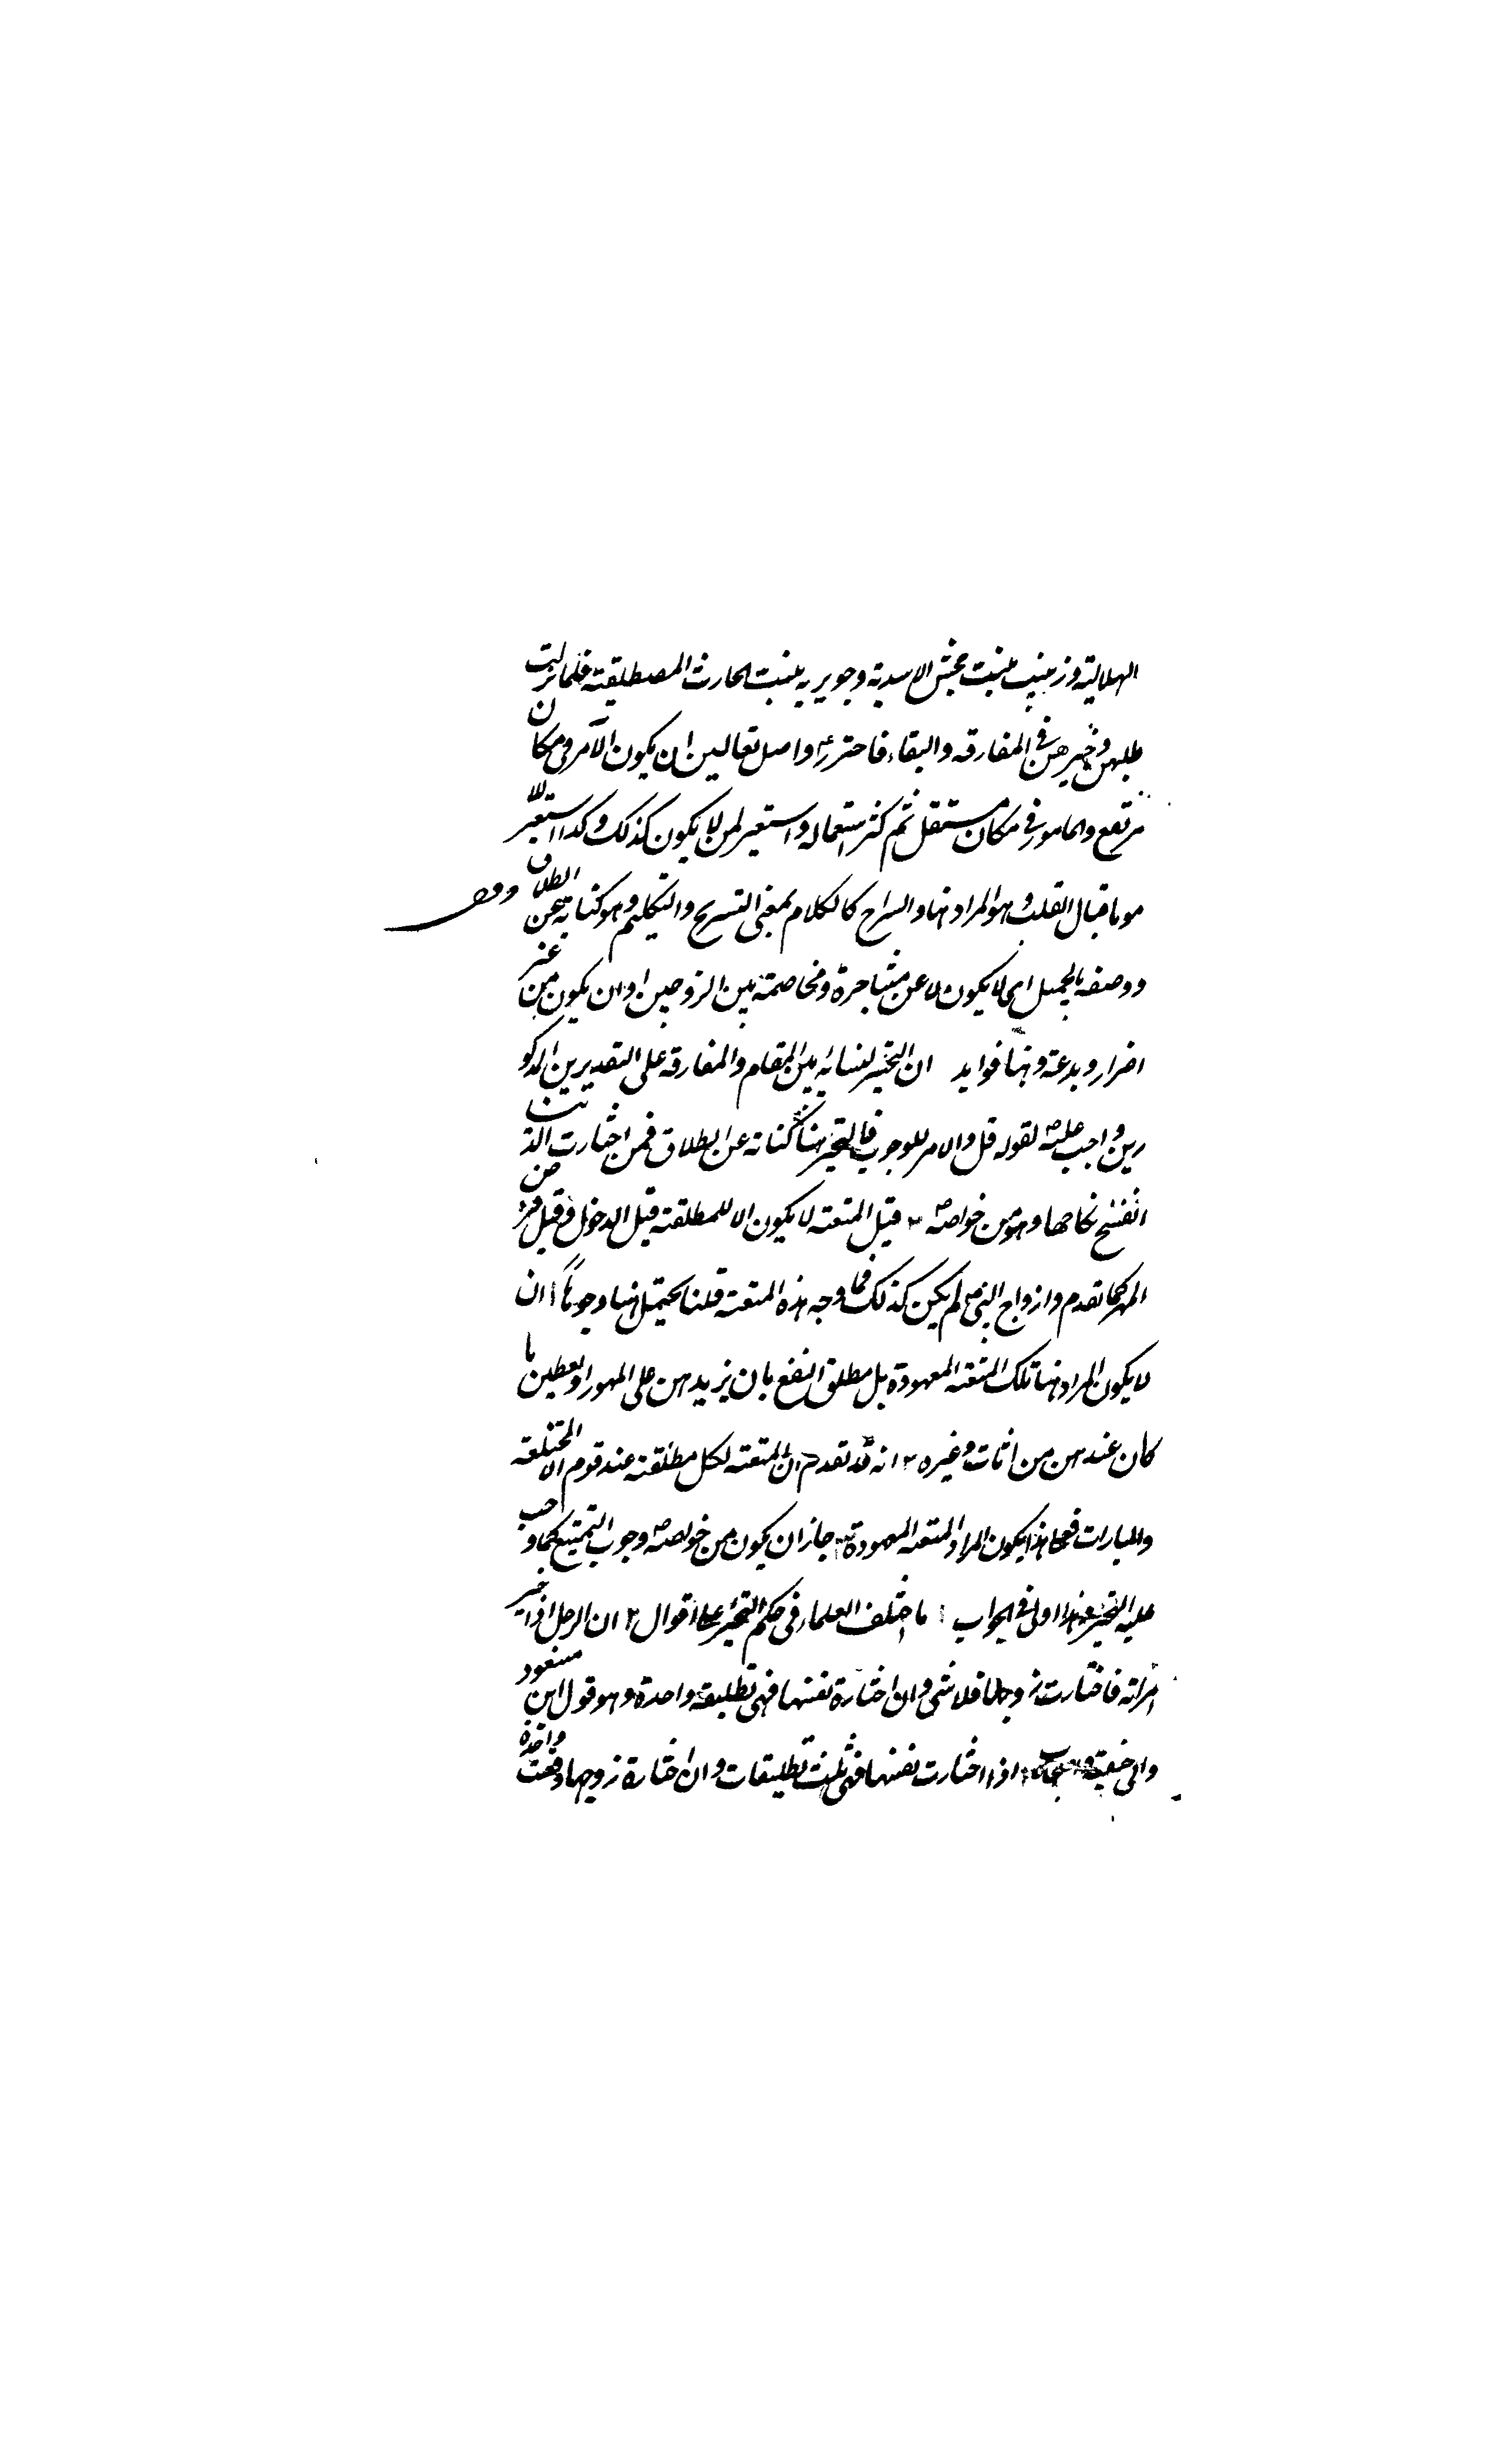 الهلالية وزينب بنت جحش الاسدية وجويرية بنت الحارث المصطلقية فلما نزلت
طلبهن وخيرهن فى المفارقة والبقاء فاخترنه واصل تعالين ان يكون الآمر فى مكان
مرتفع والمامور فى مكان مستفل ثم كثر استعماله واستعير لمن لا يكون كذلك وكذا استعير
هو باقبال القلب وهو المراد هنا والسراح كالكلام بمعنى التسريح والتكليم وهو كناية عن الطلاق ووصـ
ووصفه بالجميل اى لا يكون لا عن مشاجرة ومخاصمة بين الزوجين او ان يكون من غير
اضرار وبدعة وهنا فوايد ان التخيير لنسائه بين المقام والمفارقة على التقديرين المذكو
رين واجب عليه لقوله قل والامر للوجوب فالتخيير هنا كناية عن الطلاق فمن اختارت الدنيا
انفسخ نكاحها وهو من خواصه ٢ قيل المتعة لا يكون الا للمطلقة قبل الدخول وقبل فرض
المهر كما تقدم وازواج النبى ص لم يكن كذلك فما وجه هذه المتعة قلنا يحتمل هنا وجوها ١ ان
لا يكون المراد هنا تلك المتعة المعهودة بل مطلق النفع بان يزيدهن على المهر او يعطين ما
كان عندهن من اثاث وغيره ٢ انه قد تقدم ان المتعة لكل مطلقة عند قوم الا المختلعة
والمبارات فعلى هذا يكون المراد المتعة المعهودة ٣ جاز ان يكون من خواصه وجوب التمتيع كما وجب
عليه التخيير وهذا اولى فى الجواب ما اختلف العلماء فى حكم التخيير على اقوال ١ ان الرجل اذا خير
امراته فاختارت زوجها فلا شى وان اختارة نفسها فهى تطليقة واحدة وهو قول ابن مسعود
وابى حنيفة واصحابه اذا اختارت نفسها فهى ثلث تطليقات وان اختارة زوجها وقعت واحدة